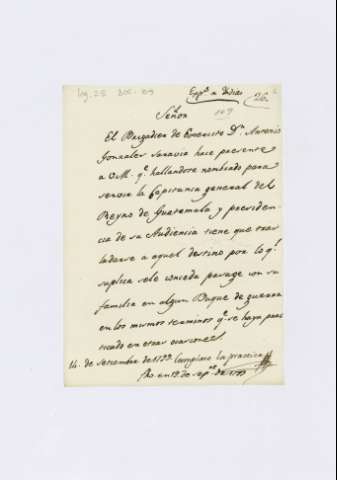 Leg. 25 Doc. 89
Exp.do a Indias 26
Señor
109
El Brigadier de Exercito Dn. Antonio
Gonzales Saravia hace presente
a V.M. qe. hallandose nombrado para
servir la Capitania general del
Reyno de Guatemala y presiden-
cia de su Audiencia tiene que tras
ladarse a aquel destino por lo qe.
suplica sele conceda pasage con su
familia en algun Buque de guerra
en los mismos terminos qe. se haya prac
ticado en otras ocasiones.
14. de Setiembre de 1799 Cumplase la practica
fho. en 19 de sepre. de 1799